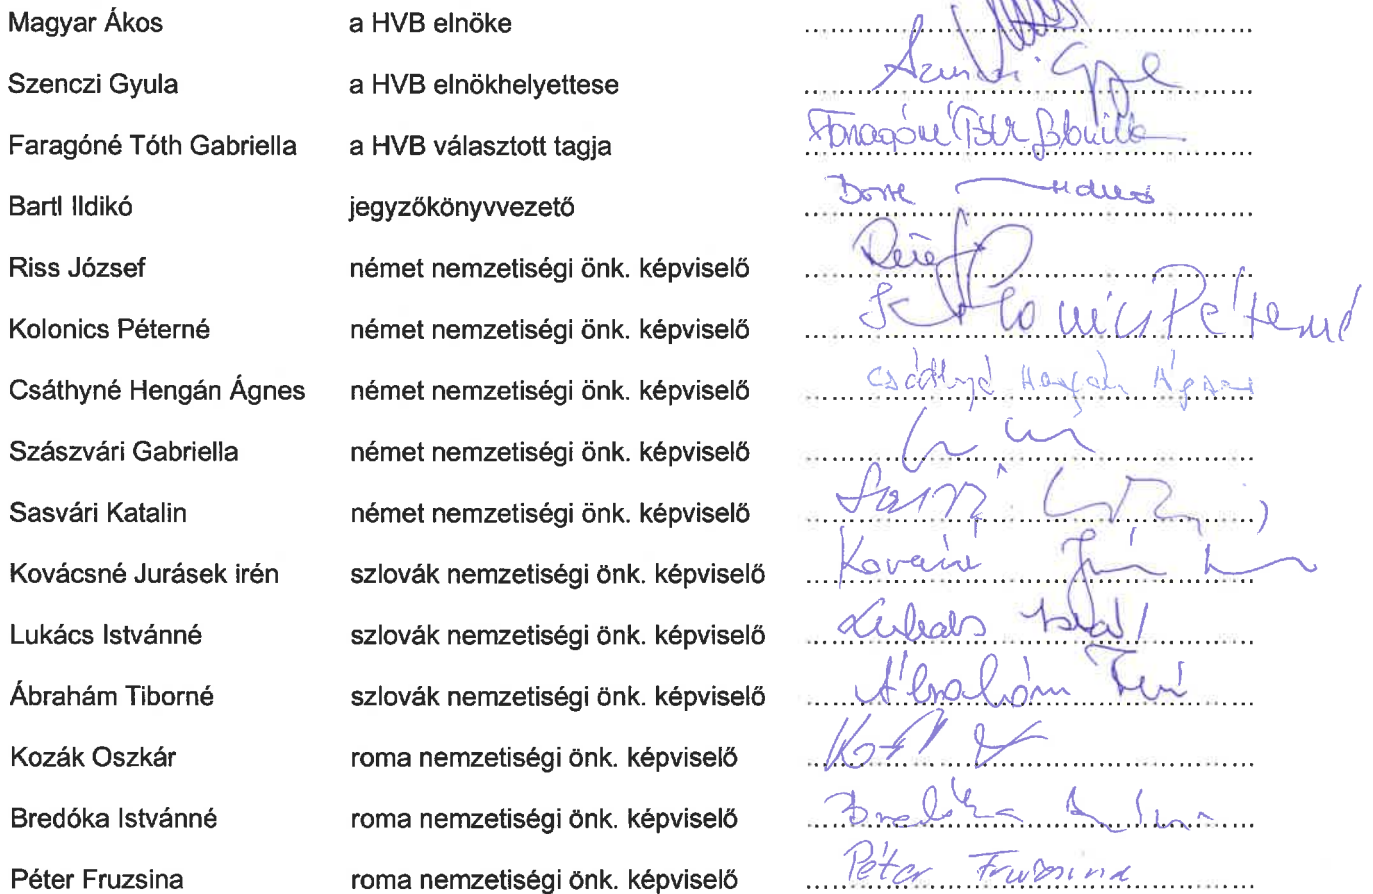 Magyar Ákos a HVB elnöke
Szenczi Gyula a HVB elnökhelyettese
Faragóné Tóth Gabriella a HVB választott tagja Faragóné Tóth Gabriella
Bartl Ildikó jegyzőkönyvvezető
Riss József német nemzetiségi önk. képviselő
Kolonics Péterné német nemzetiségi önk. képviselő Kolonics Péterné
Csáthyné Hengán Ágnes német nemzetiségi önk. képviselő Csáthyné Hengán Ágnes
Szászvári Gabriella német nemzetiségi önk. képviselő
Sasvári Katalin német nemzetiségi önk. képviselő
Kovácsné Jurásek irén szlovák nemzetiségi önk. képviselő
Lukács Istvánné szlovák nemzetiségi önk. képviselő
Ábrahám Tiborné szlovák nemzetiségi önk. képviselő Ábrahám
Kozák Oszkár roma nemzetiségi önk. képviselő
Bredóka Istvánné roma nemzetiségi önk. képviselő Bredóka
Péter Fruzsina roma nemzetiségi önk. képviselő Péter Fruzsina